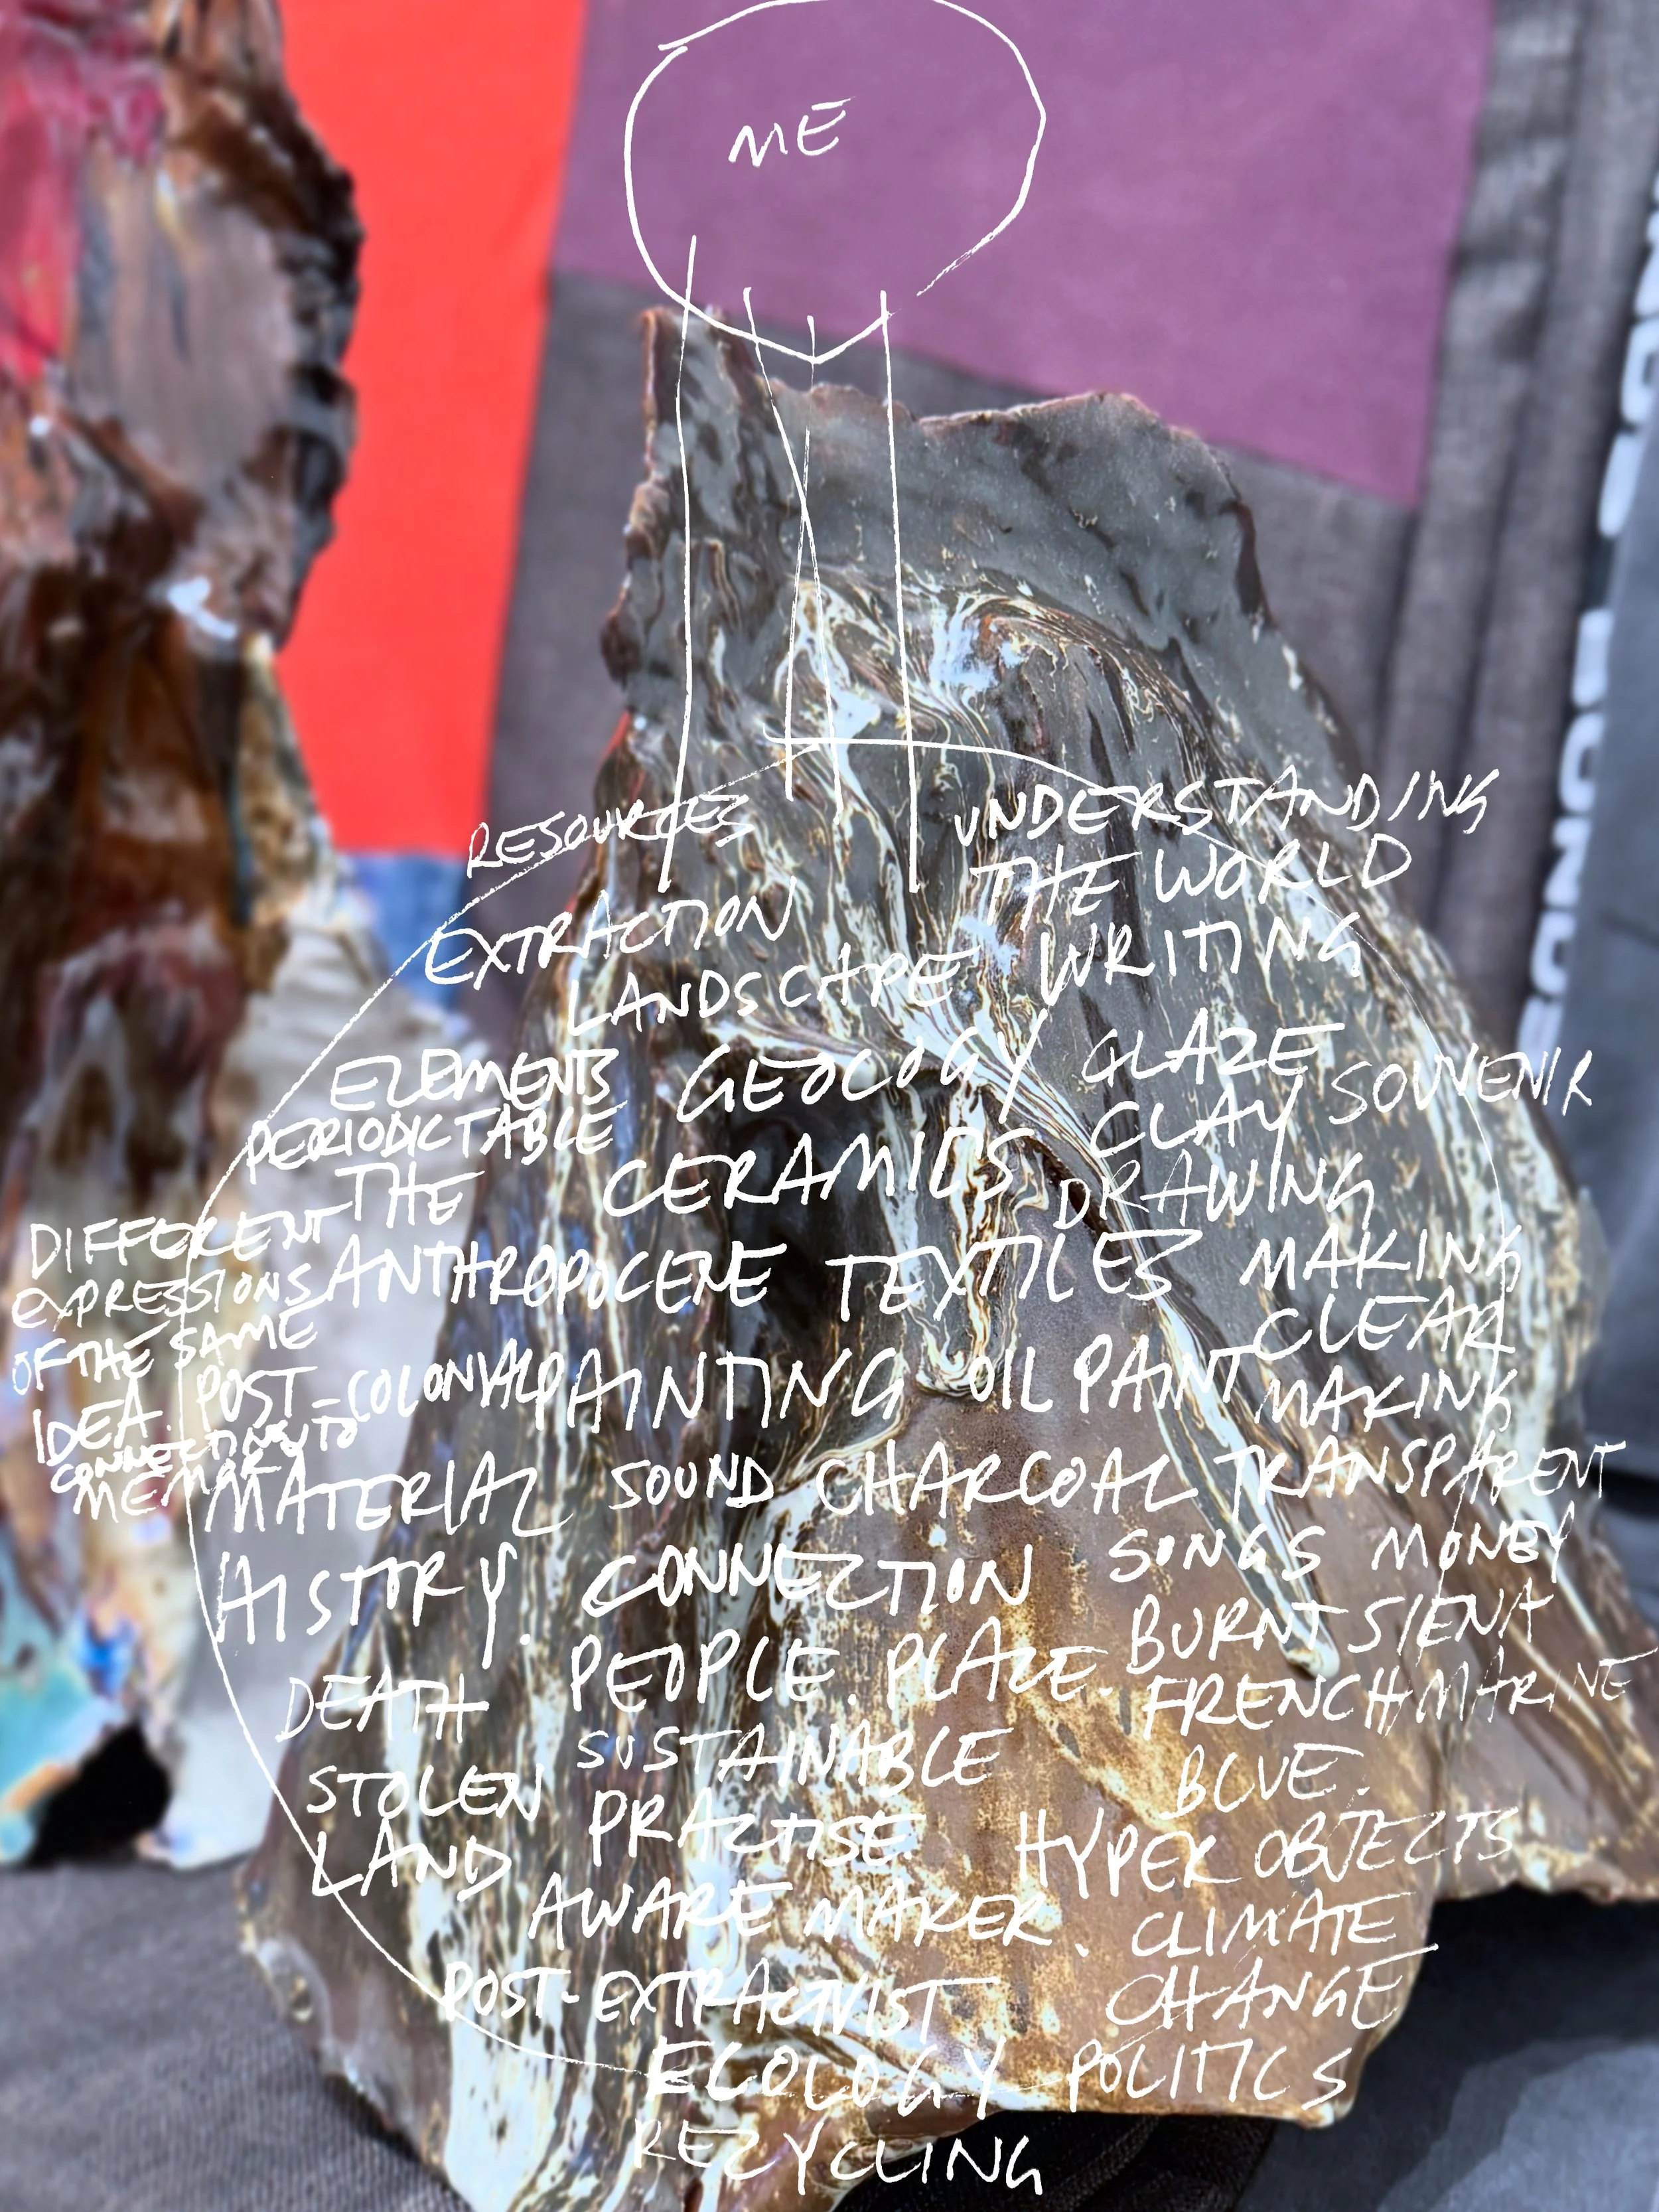 ME
RESOURCES
UNDERSTANDING
THE WORLD
EXTRACTION
LANDSCAPE WRITING
ELEMENTS GEOLOGY GLAZE
PERIODIC TABLE CLAY SOUVENIR
THE CERAMICS DRAWING
DIFFERENT
EXPRESSIONS
OF THE SAME
IDEA
CONNECTING TO
MEMORY
ANTHROPOCENE TEXTILES MAKING
CLEAR
POST-COLONIAL PAINTING OIL PAINT MAKING
MATERIAL SOUND CHARCOAL TRANSPARENT
HISTORY. CONNECTION SONGS MONEY
PEOPLE. PLACE. BURNT SIENA
DEATH FRENCH MARINE
SUSTAINABLE BLUE.
STOLEN PRACTISE HYPER OBJECTS
LAND
AWARE MAKER. CLIMATE
POST-EXTRACTIVIST CHANGE
ECOLOGY POLITICS
RECYCLING